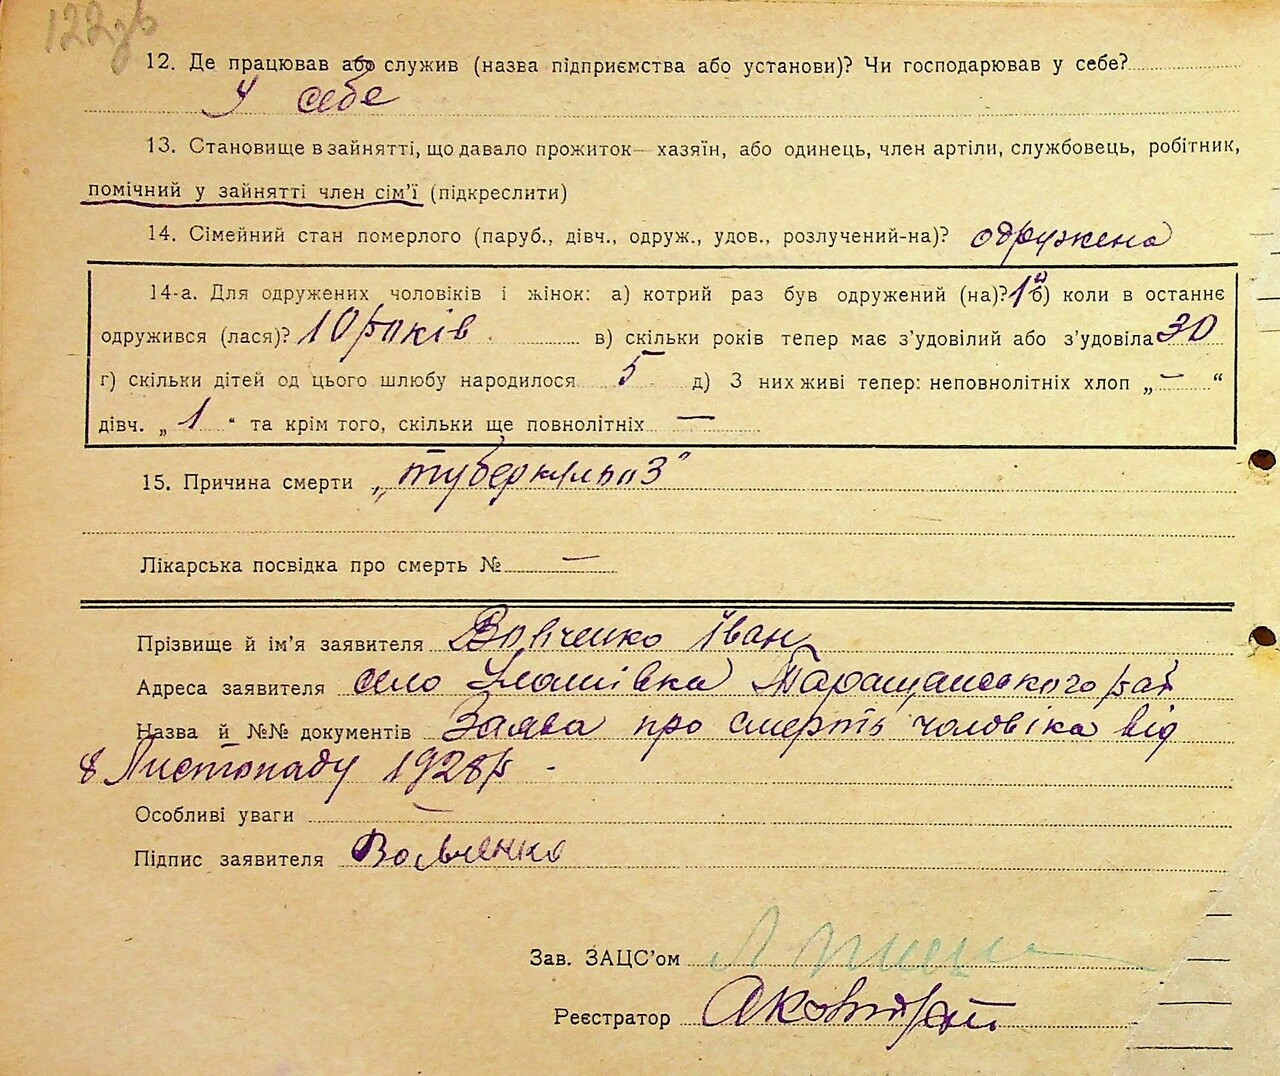 122зв
12. Де працював або служив (назва підприємства або установи)? Чи господарював у себе?
У себе
13. Становище в зайнятті, що давало прожиток— хазяїн, або одинець, член артіли, службовець, робітник,
помічний у зайнятті член сім'ї (підкреслити)
14. Сімейний стан померлого (паруб., дівч., одруж., удов., розлучений-на)? одружена
14-а. Для одружених чоловіків і жінок: а) котрий раз був одружений (на)? 1й б) коли в останнє
одружився (лася)? 10 років в) скільки років тепер має з'удовілий або з'удовіла 30
г) скільки дітей од цього шлюбу народилося 5 д) З них живі тепер: неповнолітніх хлоп „—“
дівч. „1“ та крім того, скільки ще повнолітніх —
15. Причина смерти „туберкульоз"
Лікарська посвідка про смерть № —
Прізвище й ім'я заявителя Вовченко Іван
Адреса заявителя село Улашівка Таращанського рай
Назва й №№ документів Заява про смерть чоловіка від
8 Листопаду 1928 р. -
Особливі уваги —
Підпис заявителя
Зав. ЗАЦС'ом
Реєстратор